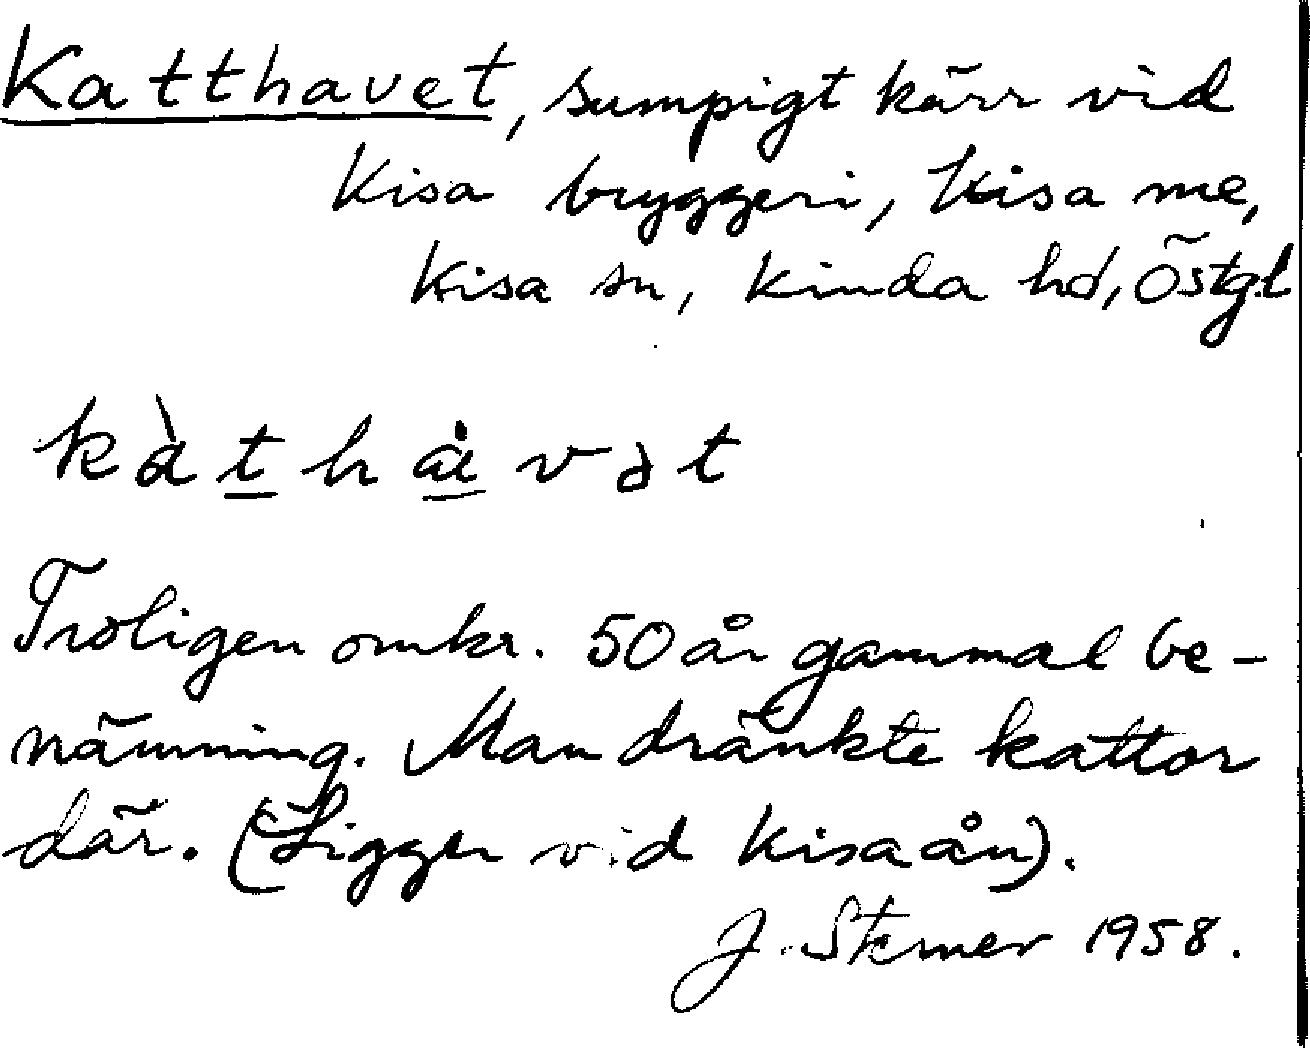 Katthavet, sumpigt kärr vid
Kisa bryggeri, Kisa me,
Kisa sn, Kinda hd, Östgl
kàthávət
Troligen omkr. 50 år gammal be-
nämning. Man dränkte kattor
där. (Ligger vid Kisaån).
J. Sterner 1958.